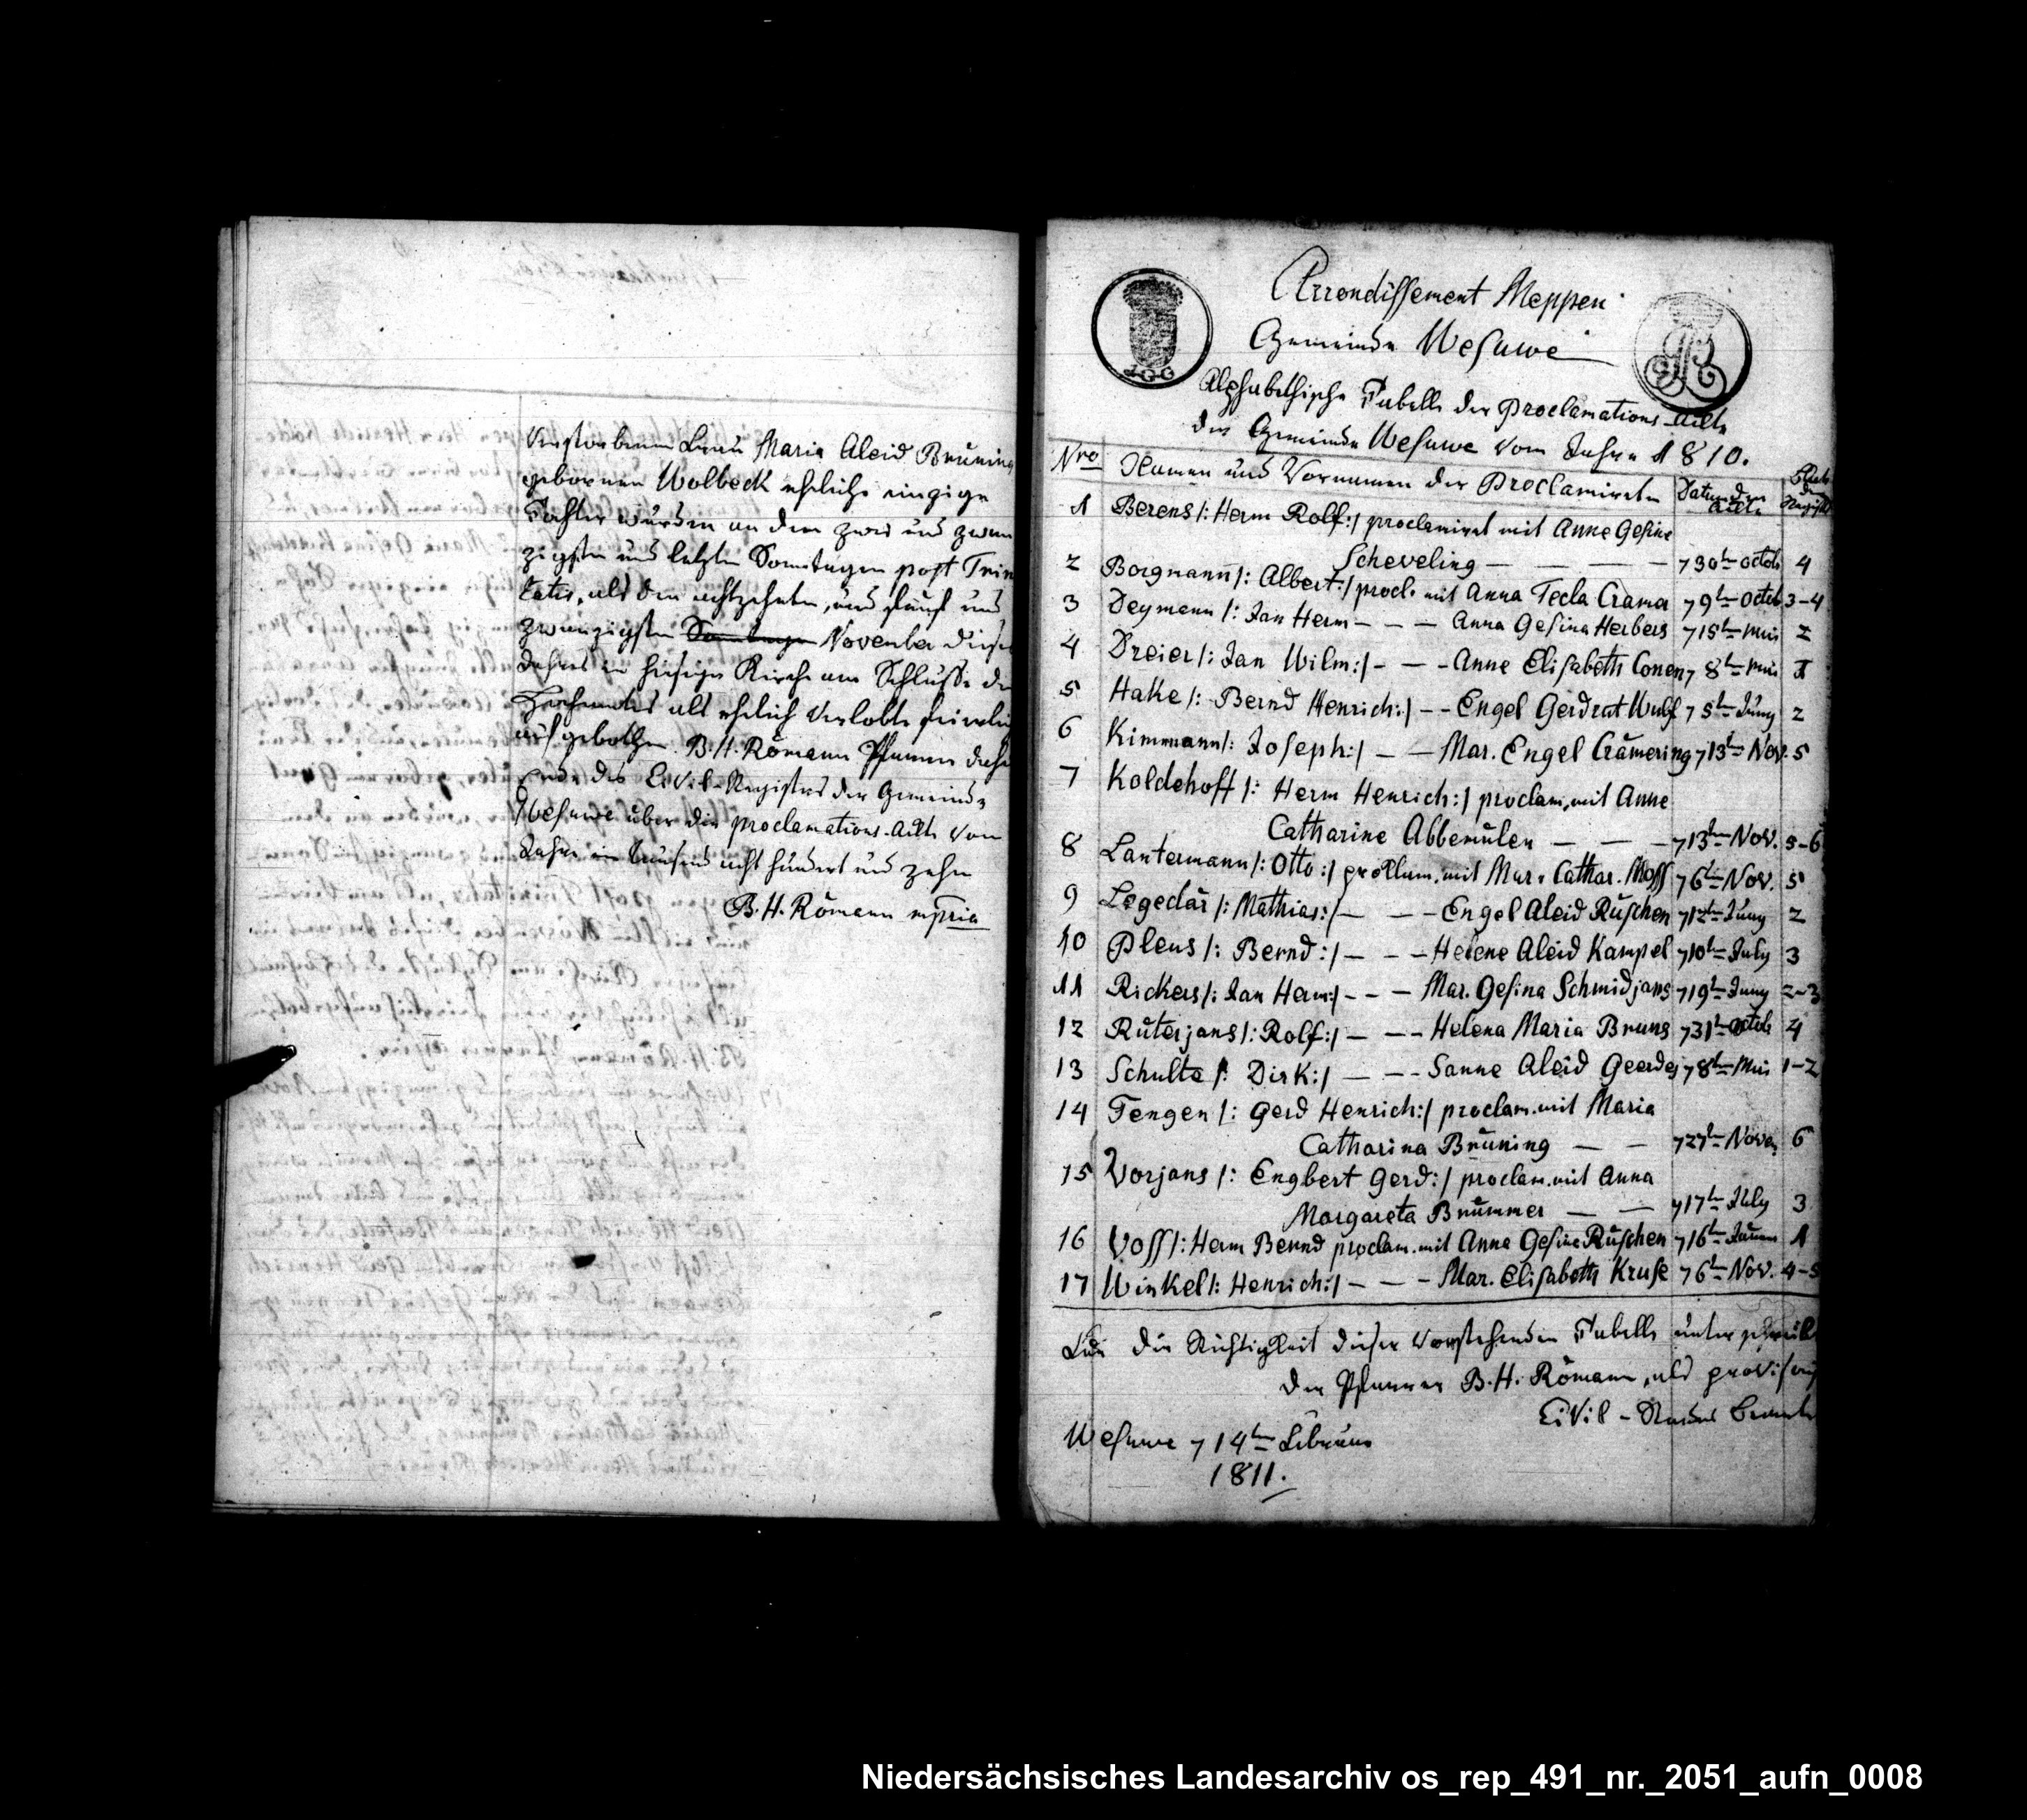 verstorbenen Frau Maria Aleid Brüning
gebornen Wolbeck eheliche einzige
Tochter wurden an dem zwei und zwan
zigsten und letzten Sonntagen post Trin
tatis, als den achtzehnten, und fünf und
zwanzigsten Sonntagen November dieses
Jahres in hiesiger Kirche am Schlusse des
Hochamtes als ehelich Verlobte feierlich
aufgebothen. B. H. Römann Pfarrer dahier
Ende des Civil-Registers der Gemeinde
Wesuwe über die proclamations-Acte vom
Jahre ein tausend acht hundert und zehn
B. H. Römann mpria
Arrondissement Meppen
Gemeinde Wesuwe
Alphabethische Tabelle der Proclamations-Acte
der Gemeinde Wesuwe vom Jahre 1810.
Nro Namen und Vornamen der Proclamirten Datum der Acte Blatt des Register
1 Berens /: Herm Rolf :/ proclamirt mit Anne Gesine
Scheveling — — — — 7 30t octob 4
2 Borgmann /: Albert :/ procl. mit Anna Tecla Cramer 7 9t octob 3-4
3 Deymann /: Jan Herm — — — Anna Gesina Herbers 7 15t Mai 2
4 Dreier /: Jan Wilm :/ — — — Anne Elisabeth Conen 7 8t Mai 1
5 Hake /: Bernd Henrich :/ — — Engel Gerdrut Wulf 7 5t Juny 2
6 Kimmann /: Joseph :/ — — Mar. Engel Crämering 7 13t Nov. 5
7 Koldehoff /: Herm Henrich :/ proclam. mit Anne
Catharine Abbemülen — — — 7 13t Nov. 5-6
8 Lantermann /: Otto :/ proclam. mit Mar. Cathar. Moss 7 6t Nov. 5
9 Legeclär /: Mathias :/ — — — Engel Aleid Rüschen 7 12t Juny 2
10 Pleus /: Bernd :/ — — — Helene Aleid Kampel 7 10t July 3
11 Rickers /: Jan Herm :/ — — — Mar. Gesina Schmidjans 7 19t Juny 2-3
12 Rüterjans /: Rolf :/ — — — Helena Maria Bruns 7 31t octob 4
13 Schulte /: Dirk :/ — — — Sanne Aleid Geerdes 7 8t Mai 1-2
14 Tengen /: Gerd Henrich :/ proclam. mit Maria
Catharina Brüning — — 7 27t Nove. 6
15 Vorjans /: Engbert Gerd :/ proclam. mit Anna
Margareta Brümmer — — 7 17t July 3
16 Voss /: Herm Bernd proclam. mit Anna Gesine Rüschen 7 16t Januar 1
17 Winkel /: Henrich :/ — — — Mar. Elisabeth Kruse 7 6t Nov. 4-5
Für die Richtigkeit dieser vorstehenden Tabelle unterschreibt
der Pfarrer B. H. Römann, als provisorisch
Civil-Standes Beamte
Wesuwe 7 14t Februar
1811.
Niedersächsisches Landesarchiv os_rep_491_nr._2051_aufn_0008